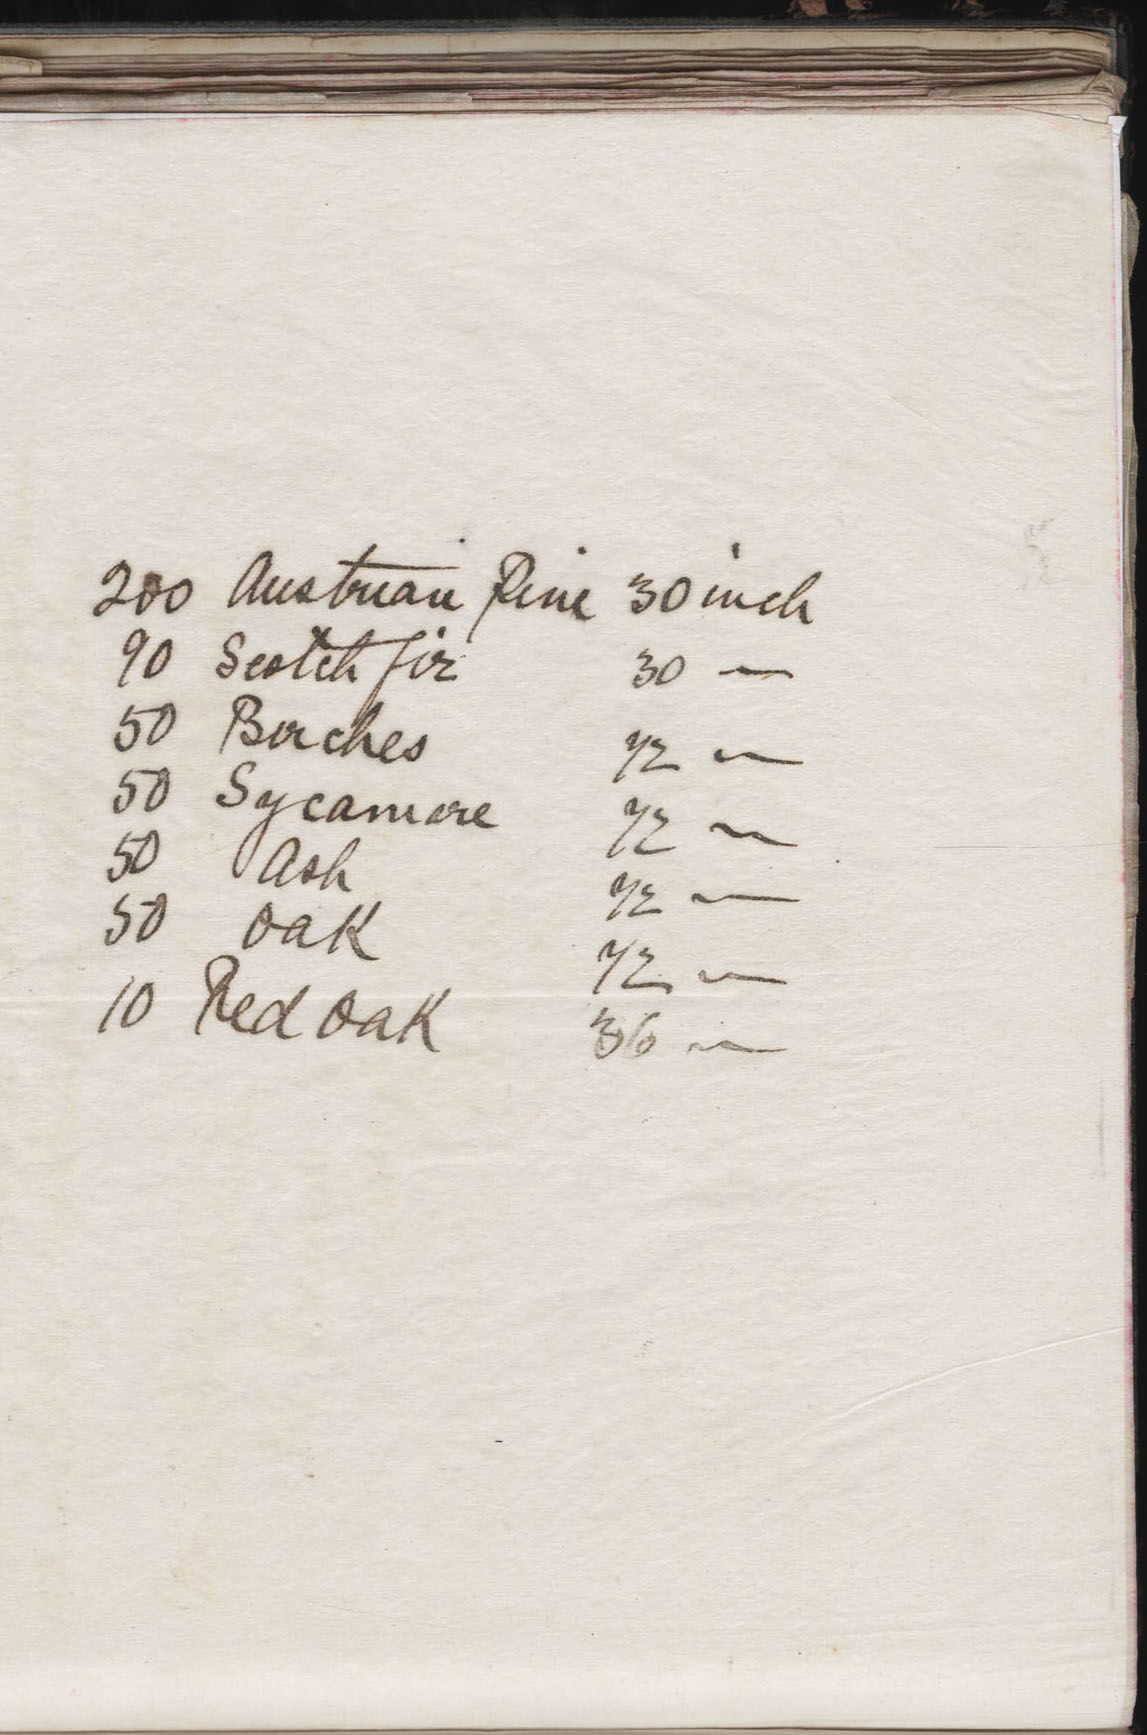 200 Austrian Pine 30 inch
90 Scotch fir 30 —
50 Birches 72 —
50 Sycamore 72 —
50 Ash 72 —
50 Oak 72 —
10 Red Oak 36 —